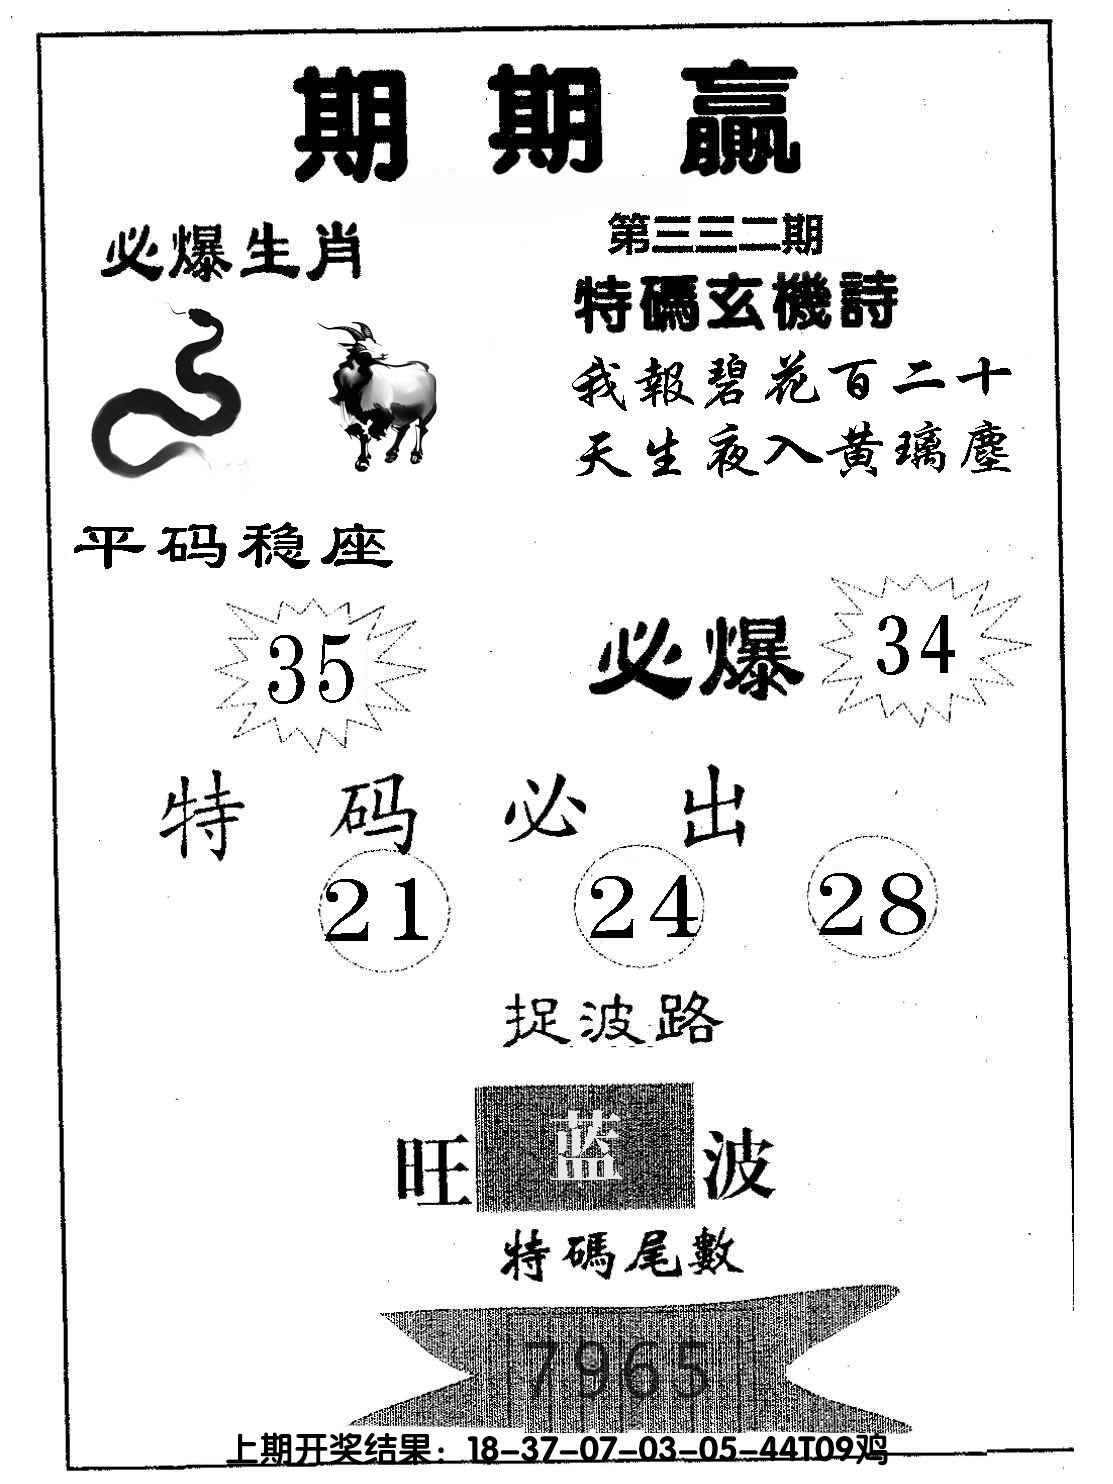 期期贏
必爆生肖
第三三二期
特碼玄機詩
我報碧花百二十
天生夜入黄璃塵
平码稳座
35
必爆
34
特码必出
21 24 28
捉波路
旺 蓝 波
特碼尾數
7965
上期开奖结果：18-37-07-03-05-44T09鸡